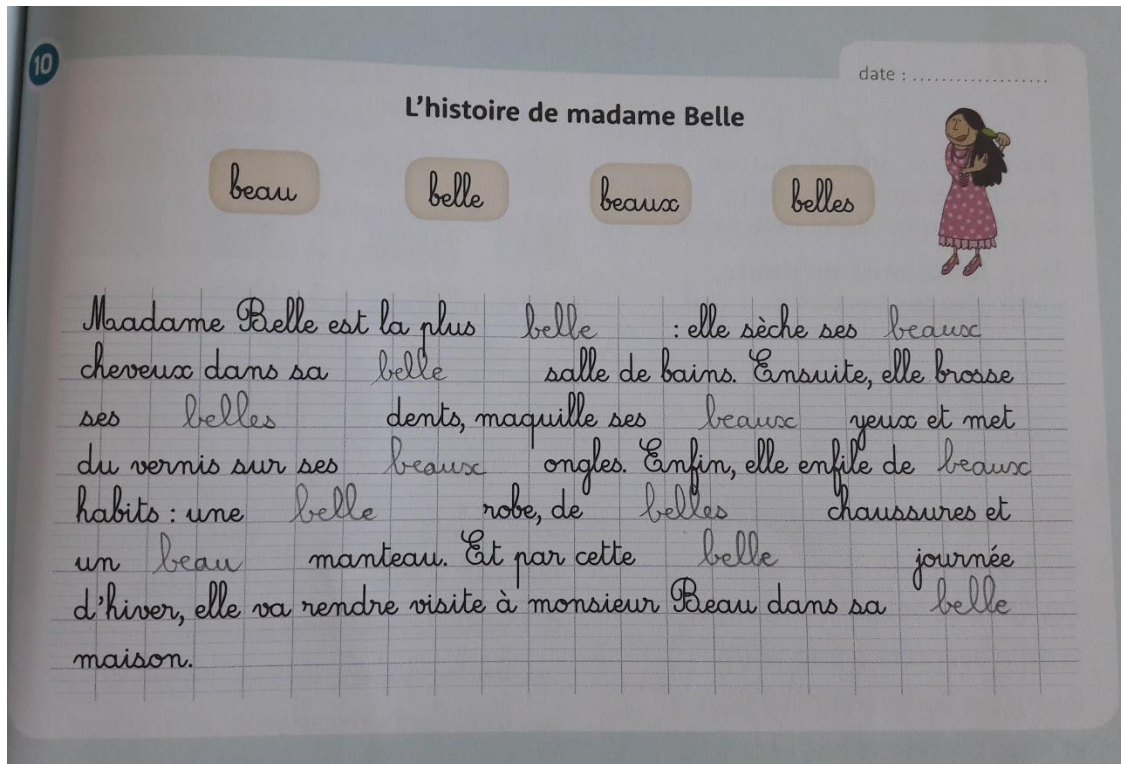 10
date : ...................
L'histoire de madame Belle
beau belle beaux belles
Madame Belle est la plus belle : elle sèche ses beaux
cheveux dans sa belle salle de bains. Ensuite, elle brosse
ses belles dents, maquille ses beaux yeux et met
du vernis sur ses beaux ongles. Enfin, elle enfile de beaux
habits : une belle robe, de belles chaussures et
un beau manteau. Et par cette belle journée
d'hiver, elle va rendre visite à monsieur Beau dans sa belle
maison.